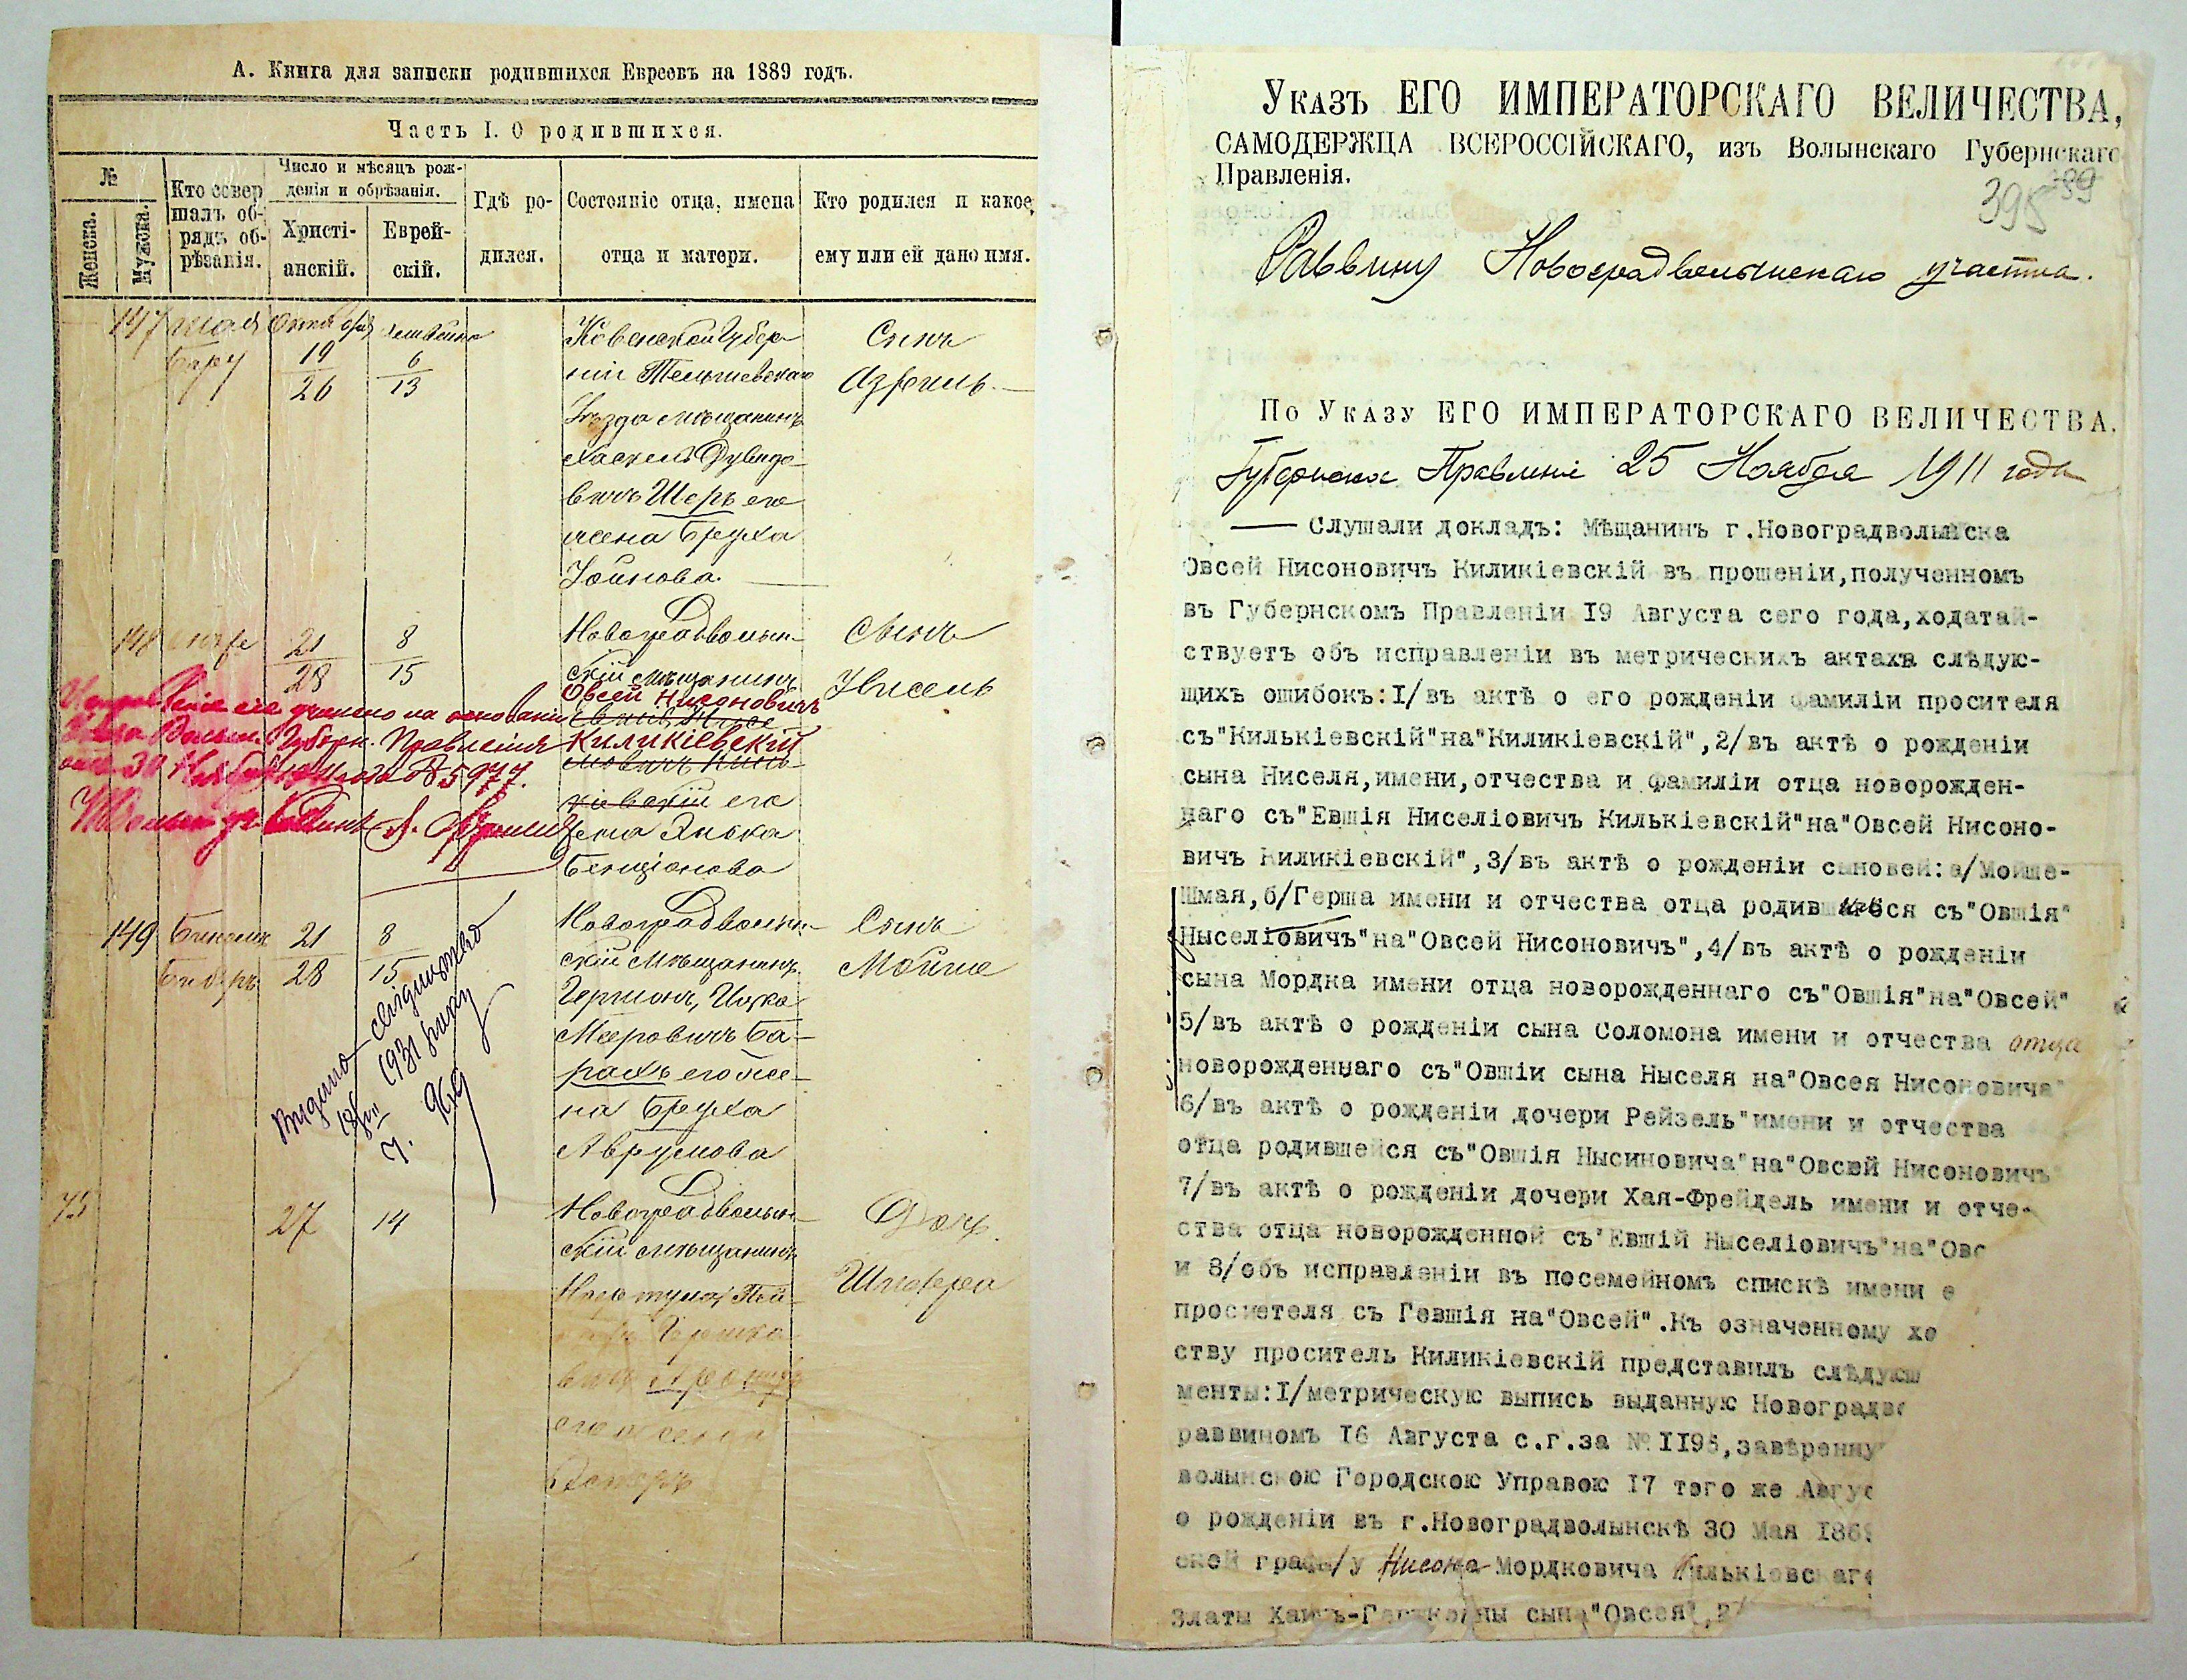 А. Книга для записки родившихся Евреевъ на 1889 годъ.
Часть I. О родившихся.
№
Женска.
Мужска.
Кто совер
шалъ об-
рядъ об-
рѣзанія.
Число и мѣсяцъ рож-
денія и обрѣзанія.
Христі-
анскій.
Еврей-
скій.
Гдѣ ро-
дился.
Состояніе отца, имена
отца и матери.
Кто родился и какое
ему или ей дано имя.
147
Октября
19
26
6
13
Ковенской Губер
ніи Тельшевскаго
Уѣзда мѣщанинъ
вичъ Шеръ его
жена Бруха
Сынъ
Азріиль
148
21
28
8
15
Новоградволын-
скій мѣщанинъ
Овсей Нисоновичъ
Киликіевскій
кіевскій его
жена Элька
Бенціонова
Сынъ
Нисель
сіе учинено на основаніи
Указа Волын. Губерн. Правленія
отъ 30 Ноября 1911 года № 5977.
149
21
28
8
15
Новоградволын-
скій мѣщанинъ
Гершонъ, Ицко
Мееровичъ Ба-
рахъ его же-
на Бруха
Аврумова
Сынъ
Мойше
Видано свідоцтво
1931 року
ч. 969
75
27
14
Новоградволын-
скій мѣщанинъ
Гершко
его жена
Эстеръ
Дочь
Указъ ЕГО ИМПЕРАТОРСКАГО ВЕЛИЧЕСТВА,
САМОДЕРЖЦА ВСЕРОССІЙСКАГО, изъ Волынскаго Губернскаго
Правленія.
395
Раввину Новоградволынскаго участка.
По Указу ЕГО ИМПЕРАТОРСКАГО ВЕЛИЧЕСТВА.
Губернское Правленіе 25 Ноября 1911 года
— Слушали докладъ: Мѣщанинъ г.Новоградволынска
Овсей Нисоновичъ Киликіевскій въ прошеніи,полученномъ
въ Губернскомъ Правленіи I9 Августа сего года,ходатай-
ствуетъ объ исправленіи въ метрическихъ актахъ слѣдую-
щихъ ошибокъ:I/въ актѣ о его рожденіи фамиліи просителя
съ"Килькіевскій"на"Киликіевскій",2/въ актѣ о рожденіи
сына Ниселя,имени,отчества и фамиліи отца новорожден-
наго съ"Евшія Ниселіовичъ Килькіевскій"на"Овсей Нисоно-
вичъ Киликіевскій",3/въ актѣ о рожденіи сыновей:а/Мойше-
Шмая,б/Герша имени и отчества отца родившагося съ"Овшія"
Ныселіовичъ"на"Овсей Нисоновичъ",4/въ актѣ о рожденіи
сына Мордка имени отца новорожденнаго съ"Овшія"на"Овсей"
5/въ актѣ о рожденіи сына Соломона имени и отчества отца
новорожденнаго съ"Овшіи сына Ныселя на"Овсея Нисоновича"
6/въ актѣ о рожденіи дочери Рейзель"имени и отчества
отца родившейся съ"Овшія Нысиновича"на"Овсей Нисоновичъ"
7/въ актѣ о рожденіи дочери Хая-Фрейдель имени и отче-
ства отца новорожденной съ"Евшій Ныселіовичъ"на"Овс
и 8/объ исправленіи въ посемейномъ спискѣ имени е
просителя съ Гевшія на"Овсей".Къ означенному хо
ству проситель Киликіевскій представилъ слѣдующ
менты:I/метрическую выпись выданную Новоградво
раввиномъ I6 Августа с.г.за № II95,завѣренну
волынскою Городскою Управою I7 того же Авгус
о рожденіи въ г.Новоградволынскѣ 30 Мая I869
ской графы/у Нисона Мордковича Килькіевскаго
Златы сына"Овсея",2/